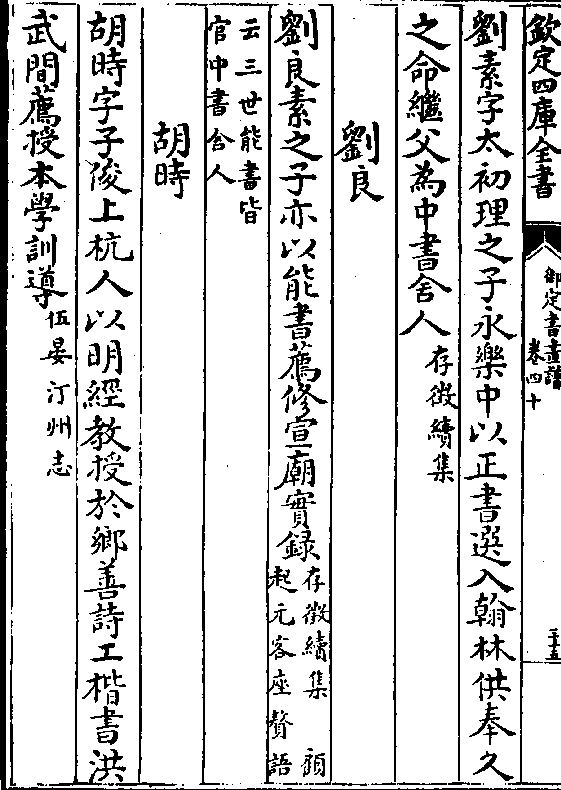 欽定四庫全書
御定書畫譜
卷四十
三十五
劉素字太初理之子永樂中以正書選入翰林供奉久
之命繼父為中書舍人存徵續集
劉良
劉良素之子亦以能書薦修宣廟實録存徵續集 顧
起元客座贅語
云三世能書皆
官中書舍人
胡時
胡時字子俊上杭人以明經教授於鄉善詩工楷書洪
武間薦授本學訓導伍晏汀州志